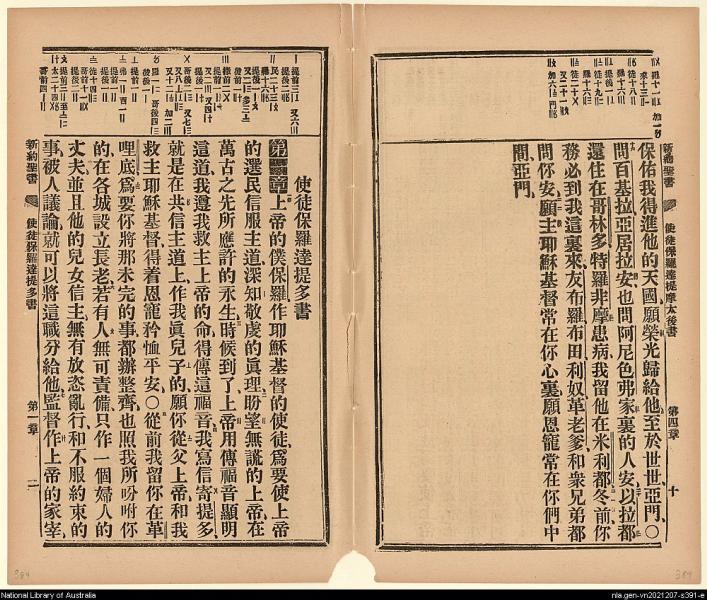 新約聖書
使徒保羅達提摩太後書
第四章
十
保佑我得進他的天國願榮光歸給他至於世世亞門○
問百基拉亞居拉安也問阿尼色弗家裏的人安以拉都
還住在哥林多特羅非摩患病我留他在米利都冬前你
務必到我這裏來友布羅布田利奴革老爹和衆兄弟都
問你安願主耶穌基督常在你心裏願恩寵常在你們中
間亞門
使徒保羅達提多書
第一章上帝的僕保羅作耶穌基督的使徒爲要使上帝
的選民信服主道深知敬虔的眞理盼望無謊的上帝在
萬古之先所應許的永生時候到了上帝用傳福音顯明
這道我遵我救主上帝的命得傳這福音我寫信寄提多
就是在共信主道上作我眞兒子的願你從父上帝和我
救主耶穌基督得着恩寵矜恤平安○從前我留你在革
哩底爲要你將那未完的事都辦整齊也照我所吩咐你
的在各城設立長老若有人無可責備只作一個婦人的
丈夫並且他的兒女信主無有放恣亂行和不服約束的
事被人議論就可以將這職分給他監督作上帝的家宰
新約聖書
使徒保羅達提多書
第一章
384
384
National Library of Australia
nla.gen-vn2021207-s391-e